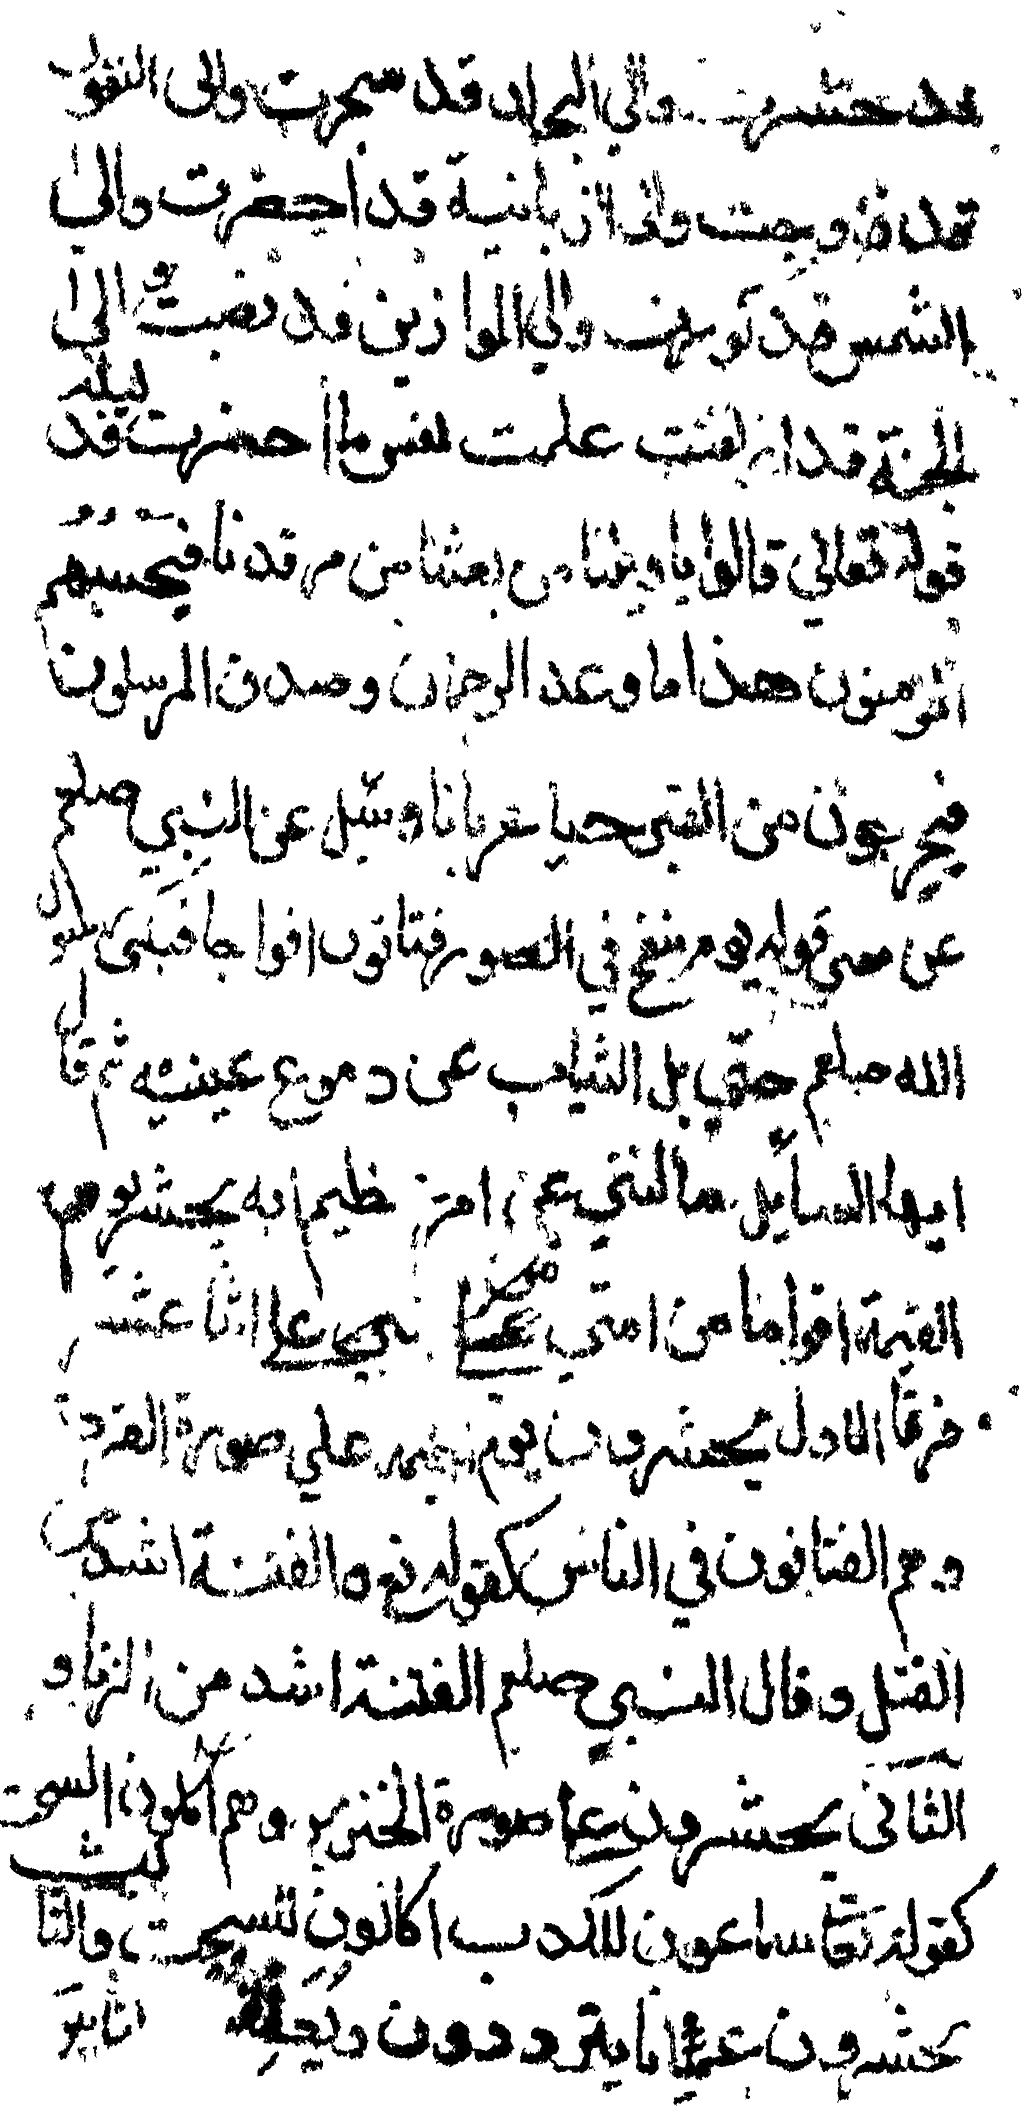 قد حشرت والي البحار قد سجرت والى النفوس
قد زوجت والى الزبانية قد احضرت والى
الشمس قد كورت والي الموازين قد نصبت والى
الجنة قد ازلفت علمت نفس ما احضرت قد
قوله تعالي قالوا يا ويلنا من بعثنا من مرقدنا فيجيبهم
المومنون هذا ما وعد الرحمان وصدق المرسلون
فيخرجون من القبر حيا عريانا وسئل عن النبي صلعم
عن معني قوله يوم ينفخ في الصور فتاتون افواجا فبكى رسول
الله صلعم حتي بل الثياب عن دموع عينيه ثم قال
ايها السايل سالتني عن امر عظيم انه يحشر يوم
القيمة اقواما من امتي علي اثنا عشر
فرقا الاول يحشرون يوم القيمة علي صورة القردة
وهم الفتانون في الناس كقوله تع والفتنة اشد من
القتل وقال النبي صلعم الفتنة اشد من الزنا و
الثاني يحشرون علي صورة الخنزير وهم اكلون السحت
كقوله تعا سماعون للكذب اكالون للسحت والثالث
يحشرون عميانا يترددون